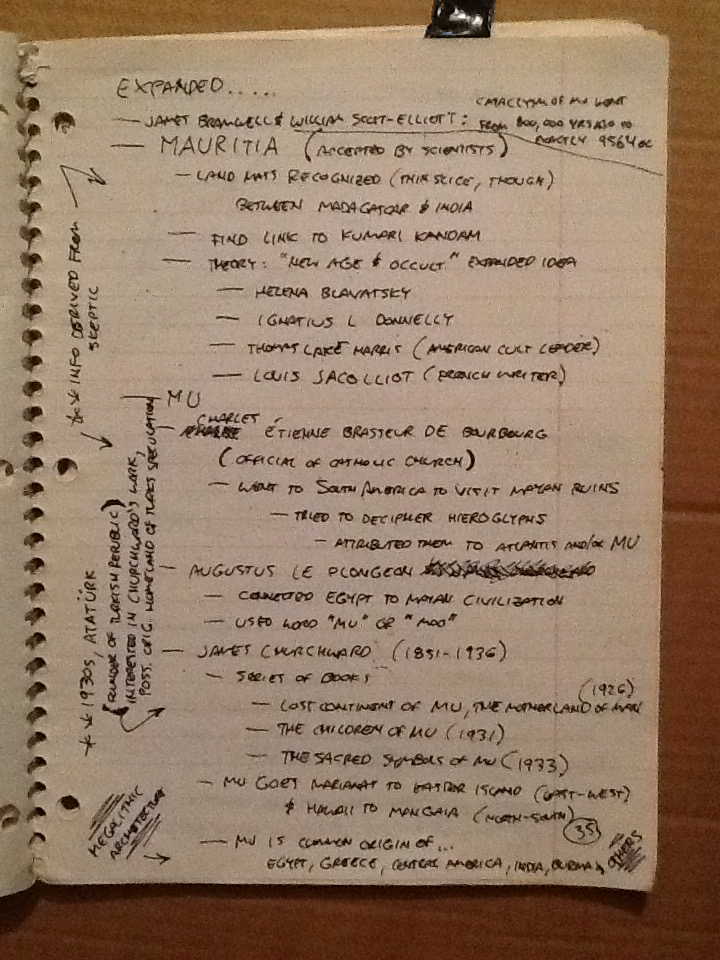 EXPANDED.....
— JAMES BRAMWELL & WILLIAM SCOTT-ELLIOTT: CATACLYSM OF MU WENT
FROM 800,000 YRS AGO TO
EXACTLY 9564 BC
— MAURITIA (ACCEPTED BY SCIENTISTS)
— LAND MASS RECOGNIZED (THIN SLICE, THOUGH)
BETWEEN MADAGASCAR & INDIA
— FIND LINK TO KUMARI KANDAM
— THEORY: "NEW AGE & OCCULT" EXPANDED IDEA
— HELENA BLAVATSKY
— IGNATIUS L DONNELLY
— THOMAS LAKE HARRIS (AMERICAN CULT LEADER)
— LOUIS JACOLLIOT (FRENCH WRITER)
— MU
— CHARLES ÉTIENNE BRASSEUR DE BOURBOURG
(OFFICIAL OF CATHOLIC CHURCH)
— WENT TO SOUTH AMERICA TO VISIT MAYAN RUINS
— TRIED TO DECIPHER HIEROGLYPHS
— ATTRIBUTED THEM TO ATLANTIS AND/OR MU
— AUGUSTUS LE PLONGEON
— CONNECTED EGYPT TO MAYAN CIVILIZATION
— USED WORD "MU" OR "MOO"
— JAMES CHURCHWARD (1851-1936)
— SERIES OF BOOKS
— LOST CONTINENT OF MU, THE MOTHERLAND OF MAN (1926)
— THE CHILDREN OF MU (1931)
— THE SACRED SYMBOLS OF MU (1933)
— MU GOES MARIANAS TO EASTER ISLAND (EAST-WEST)
& HAWAII TO MANGAIA (NORTH-SOUTH)
— MU IS COMMON ORIGIN OF...
EGYPT, GREECE, CENTRAL AMERICA, INDIA, BURMA & OTHERS
35
** INFO DERIVED FROM
SKEPTIC
** 1930s, ATATÜRK
(FOUNDER OF TURKISH REPUBLIC)
INTERESTED IN CHURCHWARD'S WORK,
POSS. ORIG. HOMELAND OF TURKS SPECULATION
MEGALITHIC
ARCHITECTURE